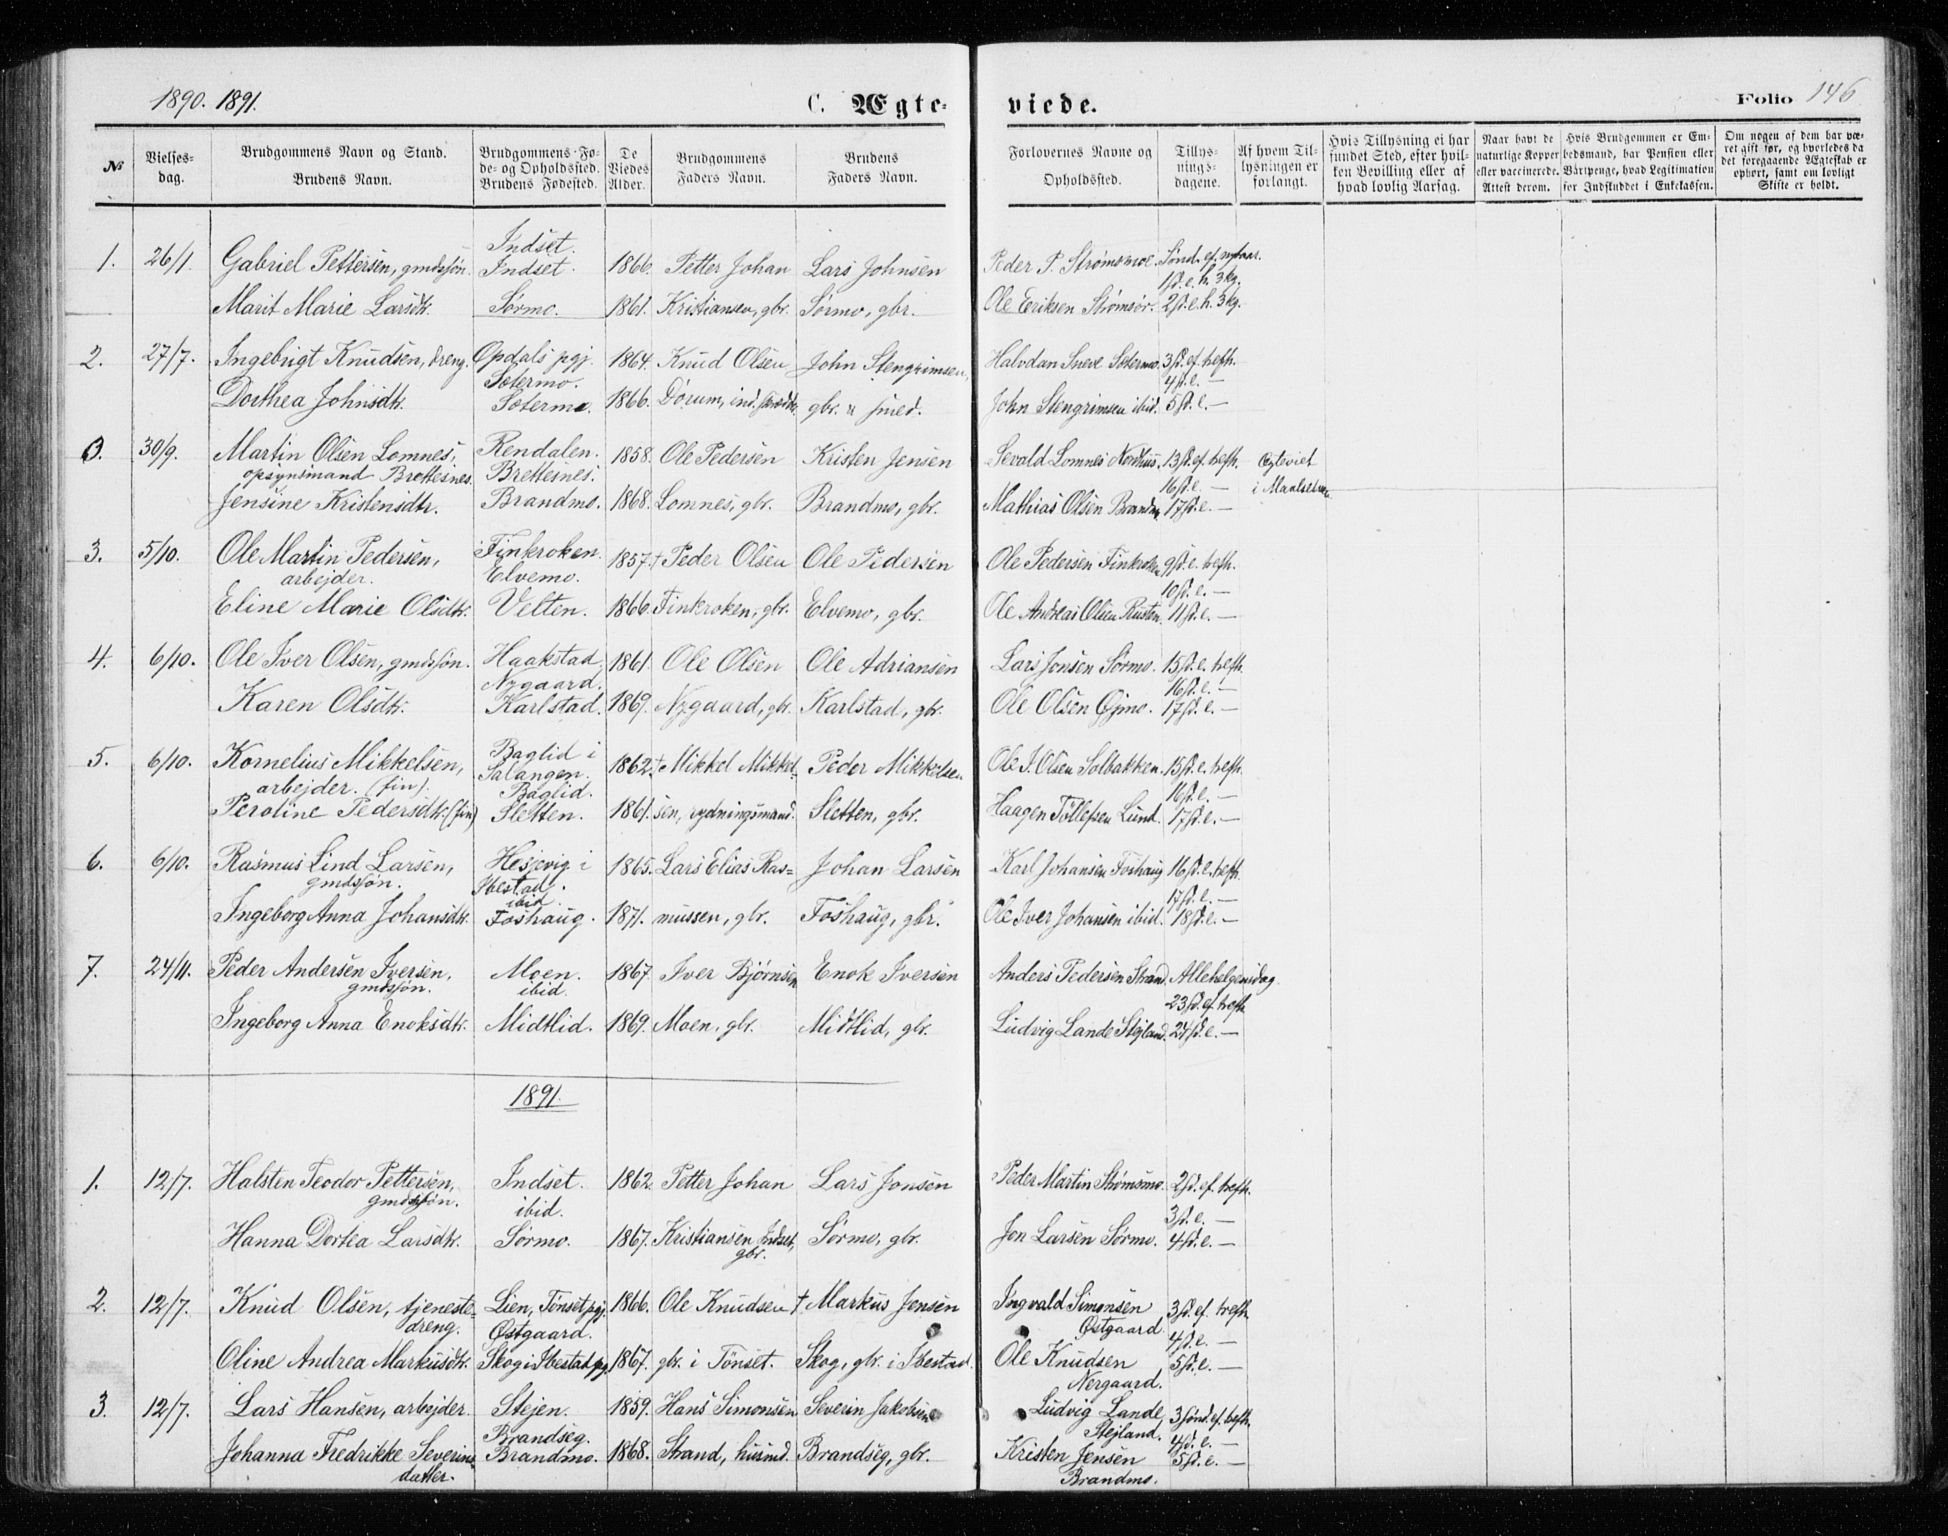 1890. 1891.
C. Ægte-
viede.
Folio 146
№
Vielses-
dag.
Brudgommens Navn og Stand.
Brudens Navn.
Brudgommens Fø-
de- og Opholdssted.
Brudens Fødested.
De
Viedes
Alder.
Brudgommens
Faders Navn.
Brudens
Faders Navn.
Forlovernes Navne og
Opholdssted.
Tillys-
nings-
dagene.
Af hvem Til-
lysningen er
forlangt.
Hvis Tillysning ei har
fundet Sted, efter hvil-
ken Bevilling eller af
hvad lovlig Aarsag.
Naar havt de
naturlige Kopper
eller vaccinerede.
Attest derom.
Hvis Brudgommen er Em-
bedsmand, har Pension eller
Vartpenge, hvad Legitimation
for Indskuddet i Enkekassen.
Om nogen af dem har væ-
ret gift før, og hvorledes da
det foregaaende Ægteskab er
ophørt, samt om lovligt
Skifte er holdt.
Indset.
1. 26/1 Gabriel Pettersen, gmdssøn. Indset. 1866. Petter Johan Lars Johnsen Peder P. Strømsmoe. Sønd. ef. nytaar.
1 s. e. h. 3 kg.
Marit Marie Larsdtr. Sørmo. 1861. Kristiansen, gbr. Sørmo, gbr. Ole Eriksen Strømsør. 2 s. e. h. 3 kg.
2. 27/7. Ingebrigt Knudsen, dreng. Opdals pgj. 1864. Knud Olsen John Stengrimsen, Halvdan Sneve Sætermo. 3 s. ef. trefh.
Sætermo. 4 s. e. —
Dorthea Johnsdtr. Sætermo. 1866. Dørum, ind. gbr. & smed. John Stengrimsen ibid. 5 s. e. —
3. 30/9. Martin Olsen Lomnes, Rendalen. 1858. Ole Pedersen Kristen Jensen Sevald Lomnes Nordhus. 13 s. ef. trefh. Ægteviet
opsynsmand Brettesnes. Brettesnes. 16 s. e. — i Maalselven
Jensine Kristensdtr. Brandmo. 1868. Lomnes, gbr. Brandmo, gbr. Mathias Olsen Brandmo 17 s. e. —
3. 5/10. Ole Martin Pedersen, Finkroken. 1857. † Peder Olsen Ole Pedersen Ole Pedersen Finkroken 9 s. e. trefh.
arbejder. Elvemo. 10 s. e. —
Eline Marie Olsdtr. Velten. 1866. Finkroken, gbr. Elvemo, gbr. Ole Andreas Olsen Rusten. 11 s. e. —
4. 6/10. Ole Iver Olsen, gmdssøn. Haakstad. 1861. Ole Olsen Ole Adriansen Lars Jonsen Sørmo. 15 s. e. trefh.
Nygaard. 16 s. e. —
Karen Olsdtr. Karlstad. 1869. Nygaard, gbr. Karlstad, gbr. Ole Olsen Gjmo. 17 s. e. —
5. 6/10. Kornelius Mikkelsen, Baglid i 1862. † Mikkel Mikkel- Peder Mikkelsen Ole J. Olsen Solbakken. 15 s. e. trefh.
arbejder. (fin). Salangen. Baglid. 16 s. e. —
Peroline Pedersdtr. (fin) Sletten. 1861. sen, rydningsmand. Sletten, gbr. Haagen Tollefsen Lund. 17 s. e. —
6. 6/10. Rasmus Lind Larsen, Hesjevig i 1865. Lars Elias Ras= Johan Larsen Karl Johansen Foshaug 16 s. e. trefh.
gmdssøn. Ibestad. ibid. 17 s. e. —
Ingeborg Anna Johansdtr. Foshaug. 1871. mussen, gbr. Foshaug, gbr. Ole Iver Johansen ibid. 18 s. e. —
7. 24/11. Peder Andersen Iversen, Moen. 1867. Iver Bjørnsen Enok Iversen Anders Pedersen Strand. Allehelgensdag.
gmdssøn. ibid. 23 s. ef. trefh.
Ingeborg Anna Enoksdtr. Midtlid. 1869. Moen, gbr. Midtlid, gbr. Ludvig Lande Stejland. 24 s. e. —
1891.
1. 12/7. Halsten Teodor Pettersen, Indset. 1862. Petter Johan Lars Jonsen Peder Martin Strømsmo. 2 s. ef. trefh.
gmdssøn. ibid. 3 s. e. —
Hanna Dortea Larsdtr. Sørmo. 1867. Kristiansen Indset, gbr. Sørmo, gbr. Jon Larsen Sørmo. 4 s. e. —
2. 12/7. Knud Olsen, tjeneste= Lien, Tønset pgj. 1866. Ole Knudsen † Markus Jensen Ingvald Simonsen 3 s. ef. trefh.
dreng. Østgaard. Østgaard 4 s. e. —
Oline Andrea Markusdtr. Skog i Ibestad pgj. 1867. gbr. i Tønset. Skog, gbr. i Ibestad. Ole Knudsen 5 s. e. —
Nergaard.
3. 12/7. Lars Hansen, arbejder. Stejen. 1859. Hans Simonsen Severin Jakobsen Ludvig Lande 3 sønd. ef. trefh.
Brandseg. Stejland. 4 s. e. —
Johanna Fredrikke Severins= Brandmo. 1868. Strand, husmd. Brandseg, gbr. Kristen Jensen 5 s. e. —
datter. Brandmo.